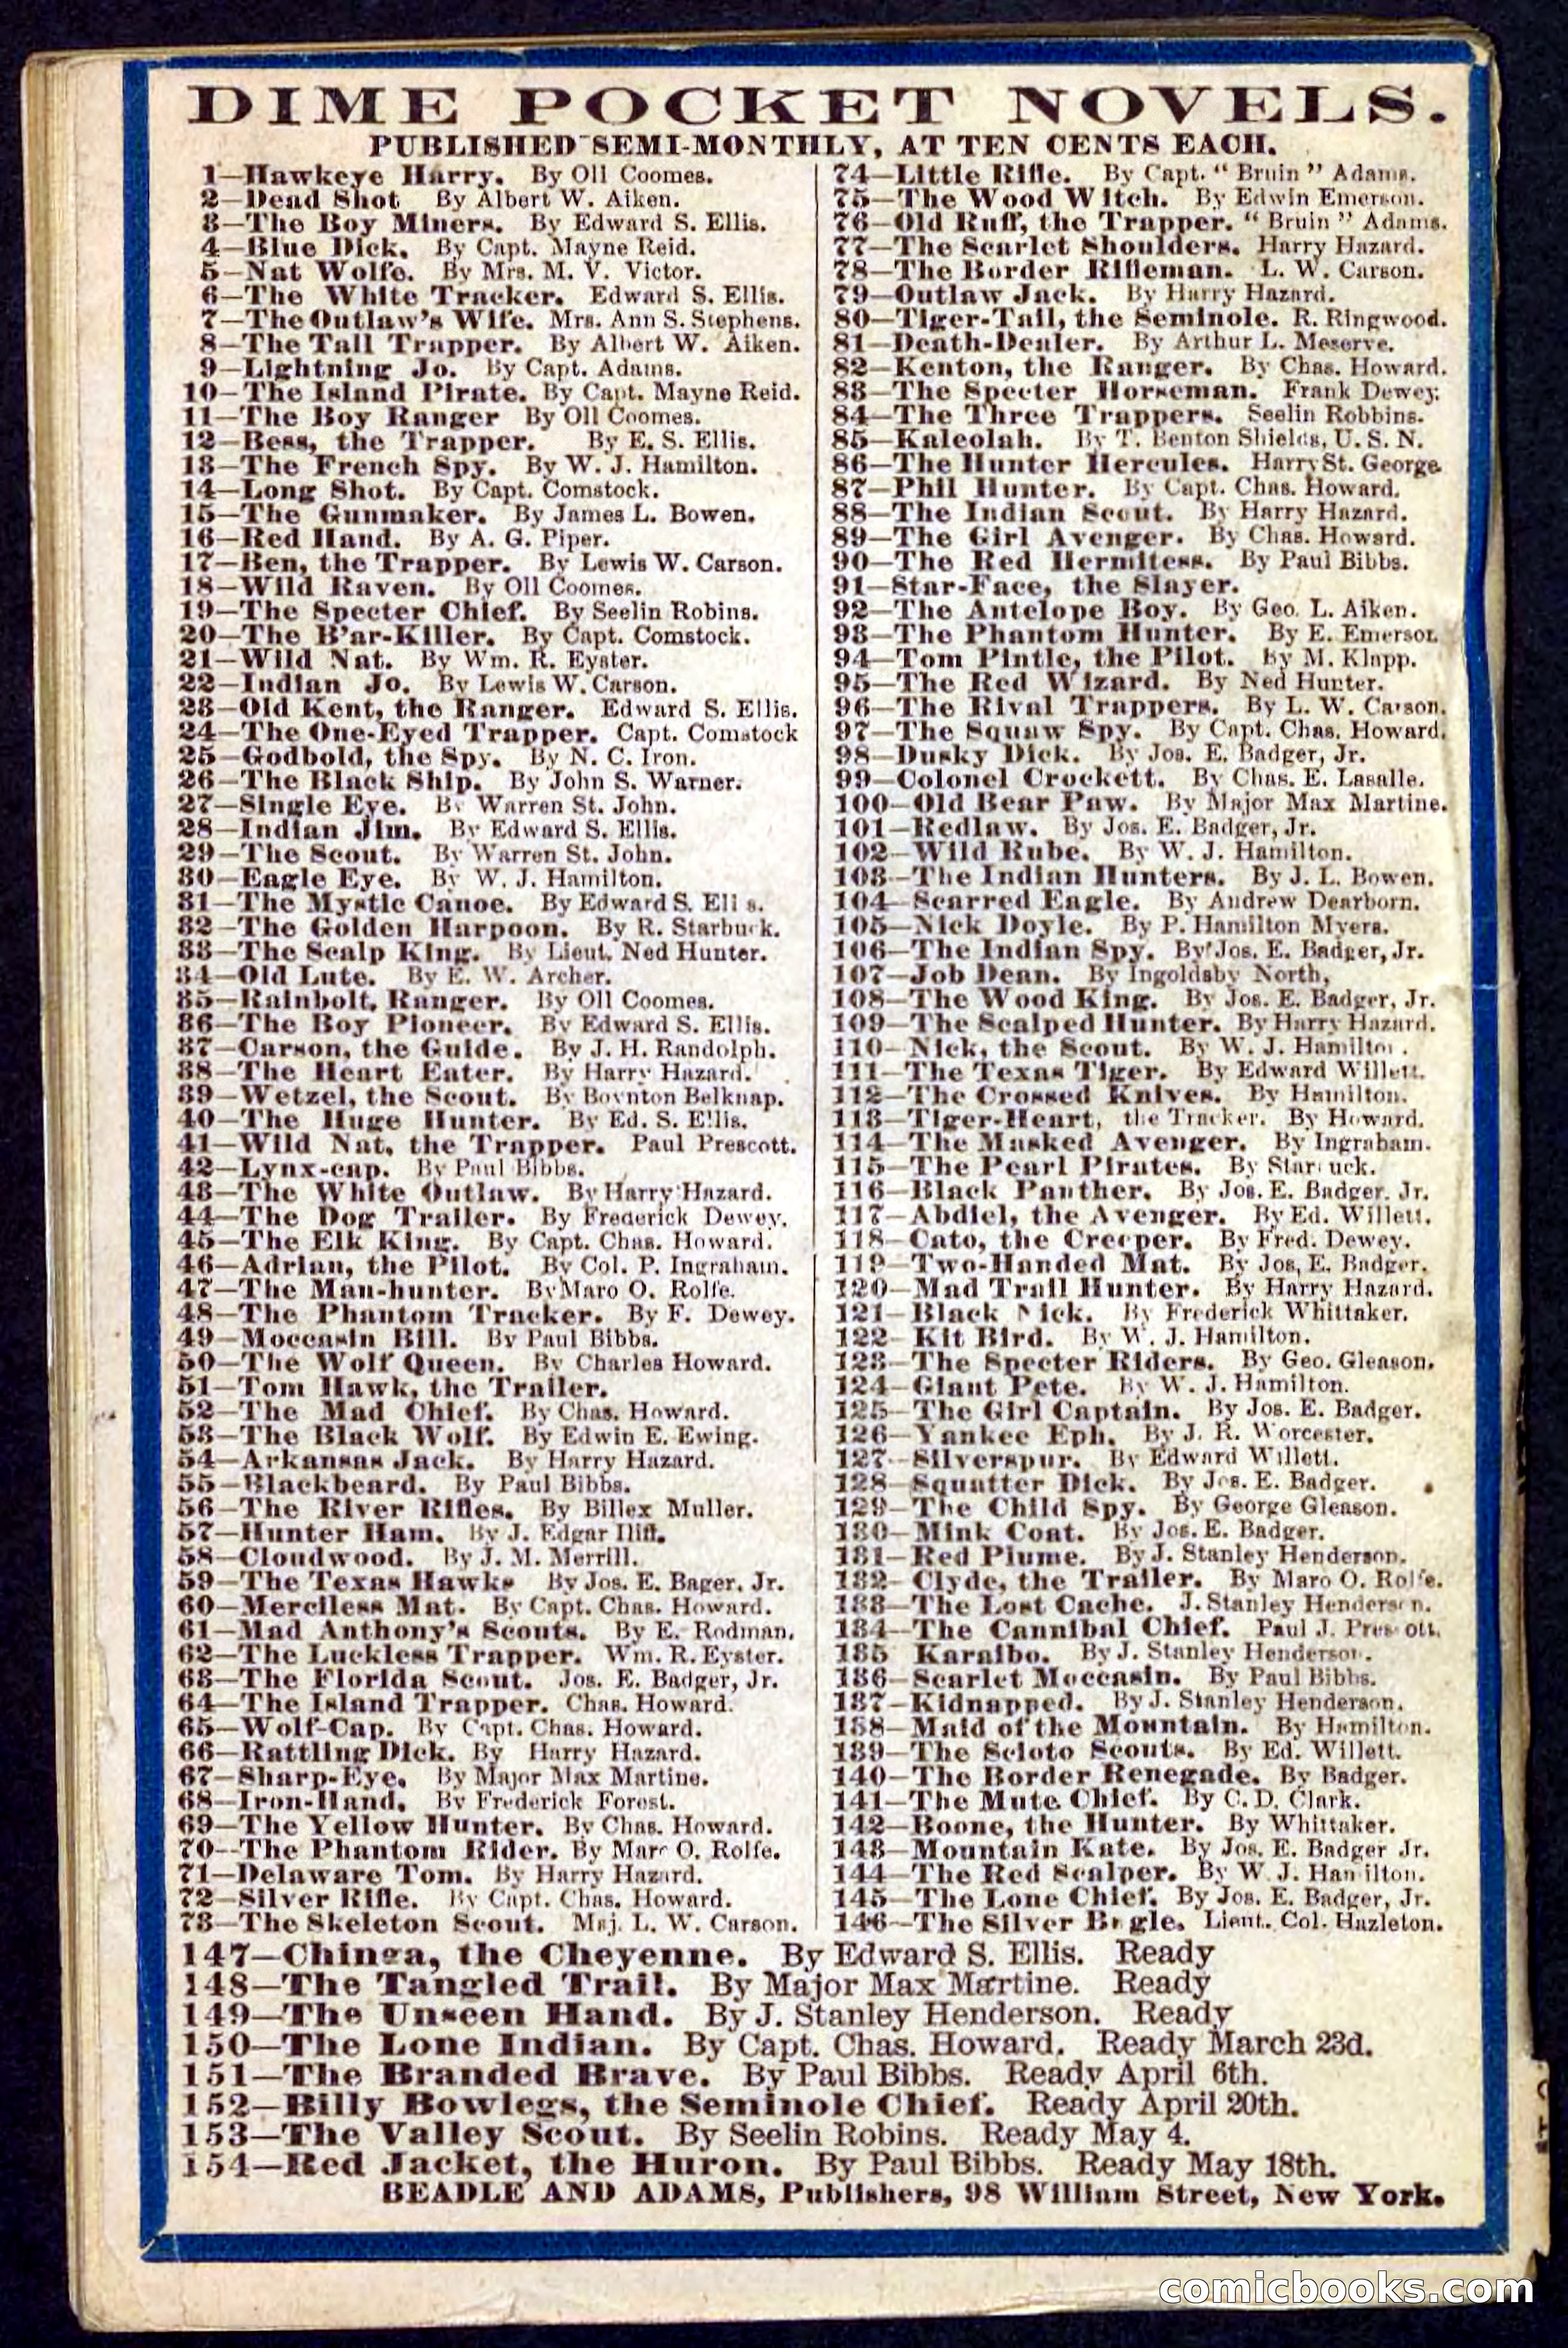 DIME POCKET NOVELS.
PUBLISHED SEMI-MONTHLY, AT TEN CENTS EACH.
1—Hawkeye Harry. By Oll Coomes.
2—Dead Shot By Albert W. Aiken.
3—The Boy Miners. By Edward S. Ellis.
4—Blue Dick. By Capt. Mayne Reid.
5—Nat Wolfe. By Mrs. M. V. Victor.
6—The White Tracker. Edward S. Ellis.
7—The Outlaw's Wife. Mrs. Ann S. Stephens.
8—The Tall Trapper. By Albert W. Aiken.
9—Lightning Jo. By Capt. Adams.
10—The Island Pirate. By Capt. Mayne Reid.
11—The Boy Ranger By Oll Coomes.
12—Bess, the Trapper. By E. S. Ellis.
13—The French Spy. By W. J. Hamilton.
14—Long Shot. By Capt. Comstock.
15—The Gunmaker. By James L. Bowen.
16—Red Hand. By A. G. Piper.
17—Ben, the Trapper. By Lewis W. Carson.
18—Wild Raven. By Oll Coomes.
19—The Specter Chief. By Seelin Robins.
20—The B'ar-Killer. By Capt. Comstock.
21—Wild Nat. By Wm. R. Eyster.
22—Indian Jo. By Lewis W. Carson.
23—Old Kent, the Ranger. Edward S. Ellis.
24—The One-Eyed Trapper. Capt. Comstock
25—Godbold, the Spy. By N. C. Iron.
26—The Black Ship. By John S. Warner.
27—Single Eye. By Warren St. John.
28—Indian Jim. By Edward S. Ellis.
29—The Scout. By Warren St. John.
30—Eagle Eye. By W. J. Hamilton.
31—The Mystic Canoe. By Edward S. Ellis.
32—The Golden Harpoon. By R. Starbuck.
33—The Scalp King. By Lieut. Ned Hunter.
34—Old Lute. By E. W. Archer.
35—Rainbolt, Ranger. By Oll Coomes.
36—The Boy Pioneer. By Edward S. Ellis.
37—Carson, the Guide. By J. H. Randolph.
38—The Heart Eater. By Harry Hazard.
39—Wetzel, the Scout. By Boynton Belknap.
40—The Huge Hunter. By Ed. S. Ellis.
41—Wild Nat, the Trapper. Paul Prescott.
42—Lynx-cap. By Paul Bibbs.
43—The White Outlaw. By Harry Hazard.
44—The Dog Trailer. By Frederick Dewey.
45—The Elk King. By Capt. Chas. Howard.
46—Adrian, the Pilot. By Col. P. Ingraham.
47—The Man-hunter. By Maro O. Rolfe.
48—The Phantom Tracker. By F. Dewey.
49—Moccasin Bill. By Paul Bibbs.
50—The Wolf Queen. By Charles Howard.
51—Tom Hawk, the Trailer.
52—The Mad Chief. By Chas. Howard.
53—The Black Wolf. By Edwin E. Ewing.
54—Arkansas Jack. By Harry Hazard.
55—Blackbeard. By Paul Bibbs.
56—The River Rifles. By Billex Muller.
57—Hunter Ham. By J. Edgar Iliff.
58—Cloudwood. By J. M. Merrill.
59—The Texas Hawks By Jos. E. Bager, Jr.
60—Merciless Mat. By Capt. Chas. Howard.
61—Mad Anthony's Scouts. By E. Rodman.
62—The Luckless Trapper. Wm. R. Eyster.
63—The Florida Scout. Jos. E. Badger, Jr.
64—The Island Trapper. Chas. Howard.
65—Wolf-Cap. By Capt. Chas. Howard.
66—Rattling Dick. By Harry Hazard.
67—Sharp-Eye. By Major Max Martine.
68—Iron-Hand. By Frederick Forest.
69—The Yellow Hunter. By Chas. Howard.
70--The Phantom Rider. By Maro O. Rolfe.
71—Delaware Tom. By Harry Hazard.
72—Silver Rifle. By Capt. Chas. Howard.
73—The Skeleton Scout. Maj. L. W. Carson.
74—Little Rifle. By Capt. "Bruin" Adams.
75—The Wood Witch. By Edwin Emerson.
76—Old Ruff, the Trapper. "Bruin" Adams.
77—The Scarlet Shoulders. Harry Hazard.
78—The Border Rifleman. L. W. Carson.
79—Outlaw Jack. By Harry Hazard.
80—Tiger-Tail, the Seminole. R. Ringwood.
81—Death-Dealer. By Arthur L. Meserve.
82—Kenton, the Ranger. By Chas. Howard.
83—The Specter Horseman. Frank Dewey.
84—The Three Trappers. Seelin Robbins.
85—Kaleolah. By T. Benton Shields, U. S. N.
86—The Hunter Hercules. Harry St. George.
87—Phil Hunter. By Capt. Chas. Howard.
88—The Indian Scout. By Harry Hazard.
89—The Girl Avenger. By Chas. Howard.
90—The Red Hermitess. By Paul Bibbs.
91—Star-Face, the Slayer.
92—The Antelope Boy. By Geo. L. Aiken.
93—The Phantom Hunter. By E. Emerson.
94—Tom Pintle, the Pilot. By M. Klapp.
95—The Red Wizard. By Ned Hunter.
96—The Rival Trappers. By L. W. Carson.
97—The Squaw Spy. By Capt. Chas. Howard.
98—Dusky Dick. By Jos. E. Badger, Jr.
99—Colonel Crockett. By Chas. E. Lasalle.
100—Old Bear Paw. By Major Max Martine.
101—Redlaw. By Jos. E. Badger, Jr.
102—Wild Rube. By W. J. Hamilton.
103—The Indian Hunters. By J. L. Bowen.
104—Scarred Eagle. By Andrew Dearborn.
105—Nick Doyle. By P. Hamilton Myers.
106—The Indian Spy. By Jos. E. Badger, Jr.
107—Job Dean. By Ingoldsby North,
108—The Wood King. By Jos. E. Badger, Jr.
109—The Scalped Hunter. By Harry Hazard.
110—Nick, the Scout. By W. J. Hamilton.
111—The Texas Tiger. By Edward Willett.
112—The Crossed Knives. By Hamilton.
113—Tiger-Heart, the Tracker. By Howard.
114—The Masked Avenger. By Ingraham.
115—The Pearl Pirates. By Starbuck.
116—Black Panther. By Jos. E. Badger. Jr.
117—Abdiel, the Avenger. By Ed. Willett.
118—Cato, the Creeper. By Fred. Dewey.
119—Two-Handed Mat. By Jos, E. Badger.
120—Mad Trail Hunter. By Harry Hazard.
121—Black Nick. By Frederick Whittaker.
122—Kit Bird. By W. J. Hamilton.
123—The Specter Riders. By Geo. Gleason.
124—Giant Pete. By W. J. Hamilton.
125—The Girl Captain. By Jos. E. Badger.
126—Yankee Eph. By J. R. Worcester.
127—Silverspur. By Edward Willett.
128—Squatter Dick. By Jos. E. Badger.
129—The Child Spy. By George Gleason.
130—Mink Coat. By Jos. E. Badger.
131—Red Plume. By J. Stanley Henderson.
132—Clyde, the Trailer. By Maro O. Rolfe.
133—The Lost Cache. J. Stanley Henderson.
134—The Cannibal Chief. Paul J. Prescott.
135 Karaibo. By J. Stanley Henderson.
136—Scarlet Moccasin. By Paul Bibbs.
137—Kidnapped. By J. Stanley Henderson.
138—Maid of the Mountain. By Hamilton.
139—The Scioto Scouts. By Ed. Willett.
140—The Border Renegade. By Badger.
141—The Mute Chief. By C. D. Clark.
142—Boone, the Hunter. By Whittaker.
143—Mountain Kate. By Jos. E. Badger Jr.
144—The Red Scalper. By W. J. Hamilton.
145—The Lone Chief. By Jos. E. Badger, Jr.
146—The Silver Bugle. Lieut. Col. Hazleton.
147—Chinga, the Cheyenne. By Edward S. Ellis. Ready
148—The Tangled Trail. By Major Max Martine. Ready
149—The Unseen Hand. By J. Stanley Henderson. Ready
150—The Lone Indian. By Capt. Chas. Howard. Ready March 23d.
151—The Branded Brave. By Paul Bibbs. Ready April 6th.
152—Billy Bowlegs, the Seminole Chief. Ready April 20th.
153—The Valley Scout. By Seelin Robins. Ready May 4.
154—Red Jacket, the Huron. By Paul Bibbs. Ready May 18th.
BEADLE AND ADAMS, Publishers, 98 William Street, New York.
comicbooks.com